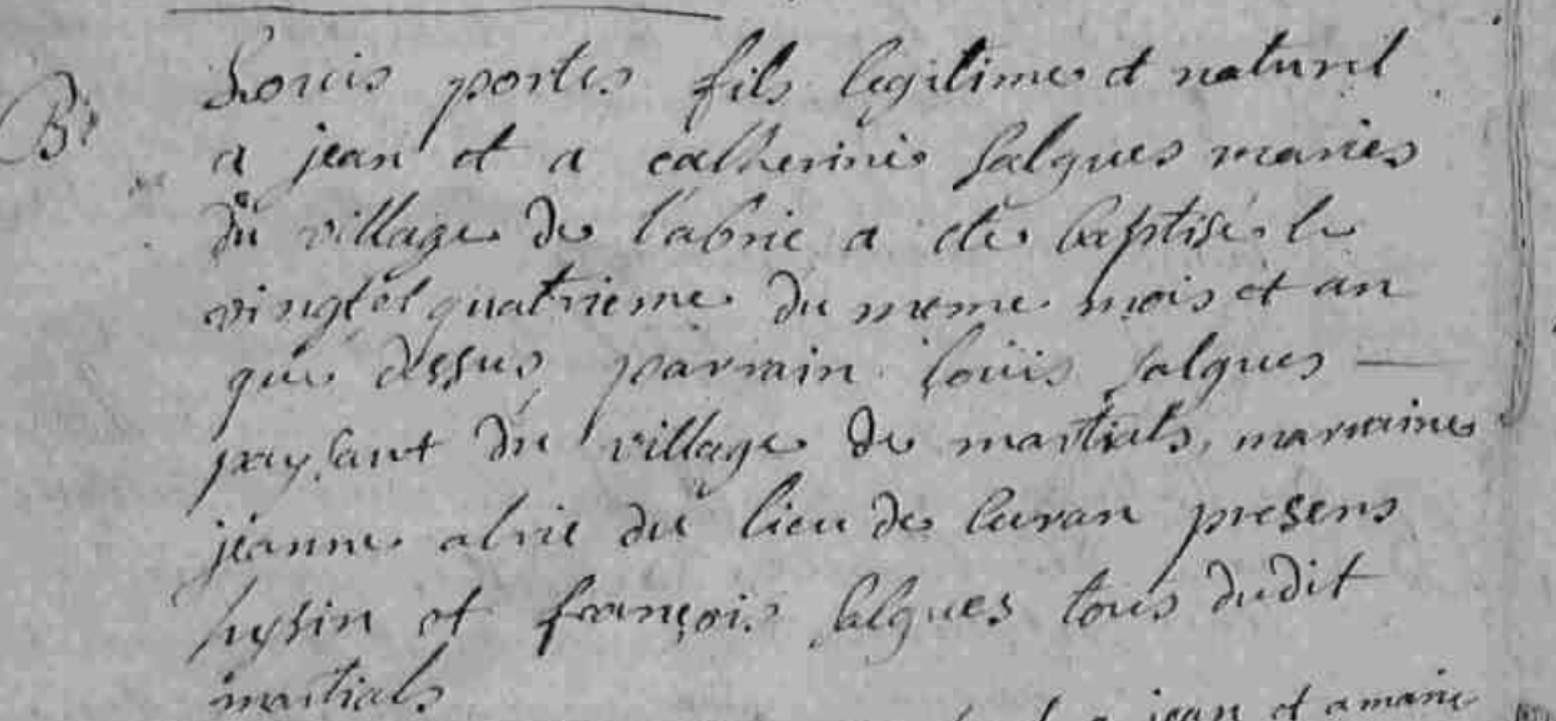 Bt
Louis portes fils legitime et naturel
a jean et a catherine salgues maries
du village de l'abric a eté baptisé le
vingt et quatrieme du meme mois et an
que dessus parrain louïs salgues —
paysant du village de martials, marraine
jeanne alric du lieu de luran presens
et françois salgues tous dudit
martials
jean et a marie